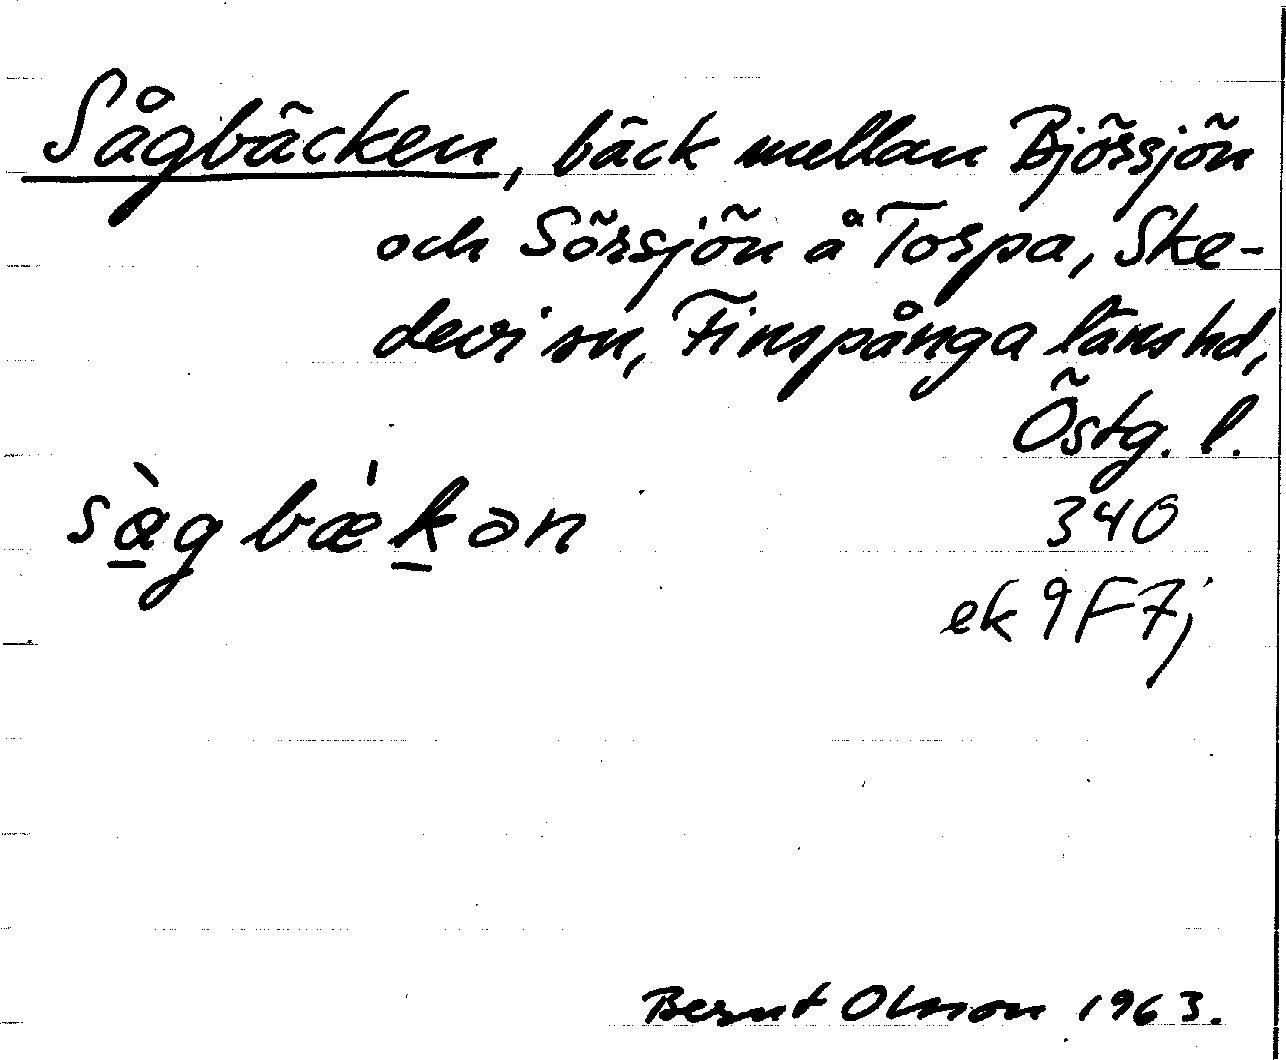 Sågbäcken, bäck mellan Björsjön
och Sörsjön å Torpa, Ske-
devi sn, Finspånga läns hd,
Östg. l.
sàgbæ'kən
340
ek 9F7j
Bernt Olsson 1963.